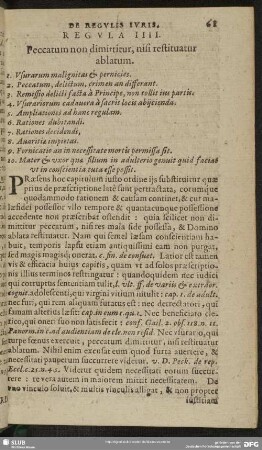 DE REGVLIS IVRIS. 61
REGVLA IIII.
Peccatum non dimittitur, nisi restituatur
ablatum.
1. Vsurarum malignitas & pernicies.
2. Peccatum, delictum, crimen an differant.
3. Remissio delicti facta à Principe, non tollit ius partis.
4. Vsurariorum cadauera à sacris locis abijcienda.
5. Ampliationes ad hanc regulam.
6. Rationes dubitandi.
7. Rationes decidendi,
8. Auaritia impietas.
9. Fornicatio an in necessitate mortis permissa sit.
10. Mater & vxor quæ filium in adulterio genuit quid faciat
vt in conscientia tuta esse possit.
PRæsens hoc capitulum iusto ordine ijs substituitur quæ
prius de præscriptione latè sunt pertractata, eorumque
quodammodo rationem & causam continet, & cur ma-
læfidei possessor vilo tempore & quantacunque possessione
accedente non præscribat ostendit : quia scilicet non di-
mittitur peccatum, nisi res mala fide possessa, & Domino
ablata restituatur. Nam qui semel læsam conscientiam ha-
buit, temporis lapsu etiam antiquissimi eam non purgat,
sed magis magisq; onerat. c. fin. de consuet. Latior est tamen
vis & efficacia huius capitis, quam vt ad solos præscriptio-
nis illius terminos restringatur : quandoquidem nec iudici
qui corruptus sententiam tulit, l. vlt. ff. de varijs & extraor.
nec furi, qui rem aliquam furatus est: nec detrectatori, qui
famam alterius læsit: cap. in cum c. qui. 1. Nec beneficiato cle-
rico, qui oneri suo non satisfecit : conf. Gail. 2. obs. 118. n. 11.
turpe fœnus exercuit, peccatum dimittitur, nisi restituatur
ablatum. Nihil enim excusat eum quod furta auertere, &
necessitati pauperum succurrere videtur. v. D. Peck. de rep.
Eccl. c. 25. n. 4. 5. Videtur quidem necessitati eorum succur-
rere : re vera autem in maiorem mittit necessitatem. De
vno vinculo soluit, & multis vinculis alligat, & non propter
iustitiam
SLUB
DFG